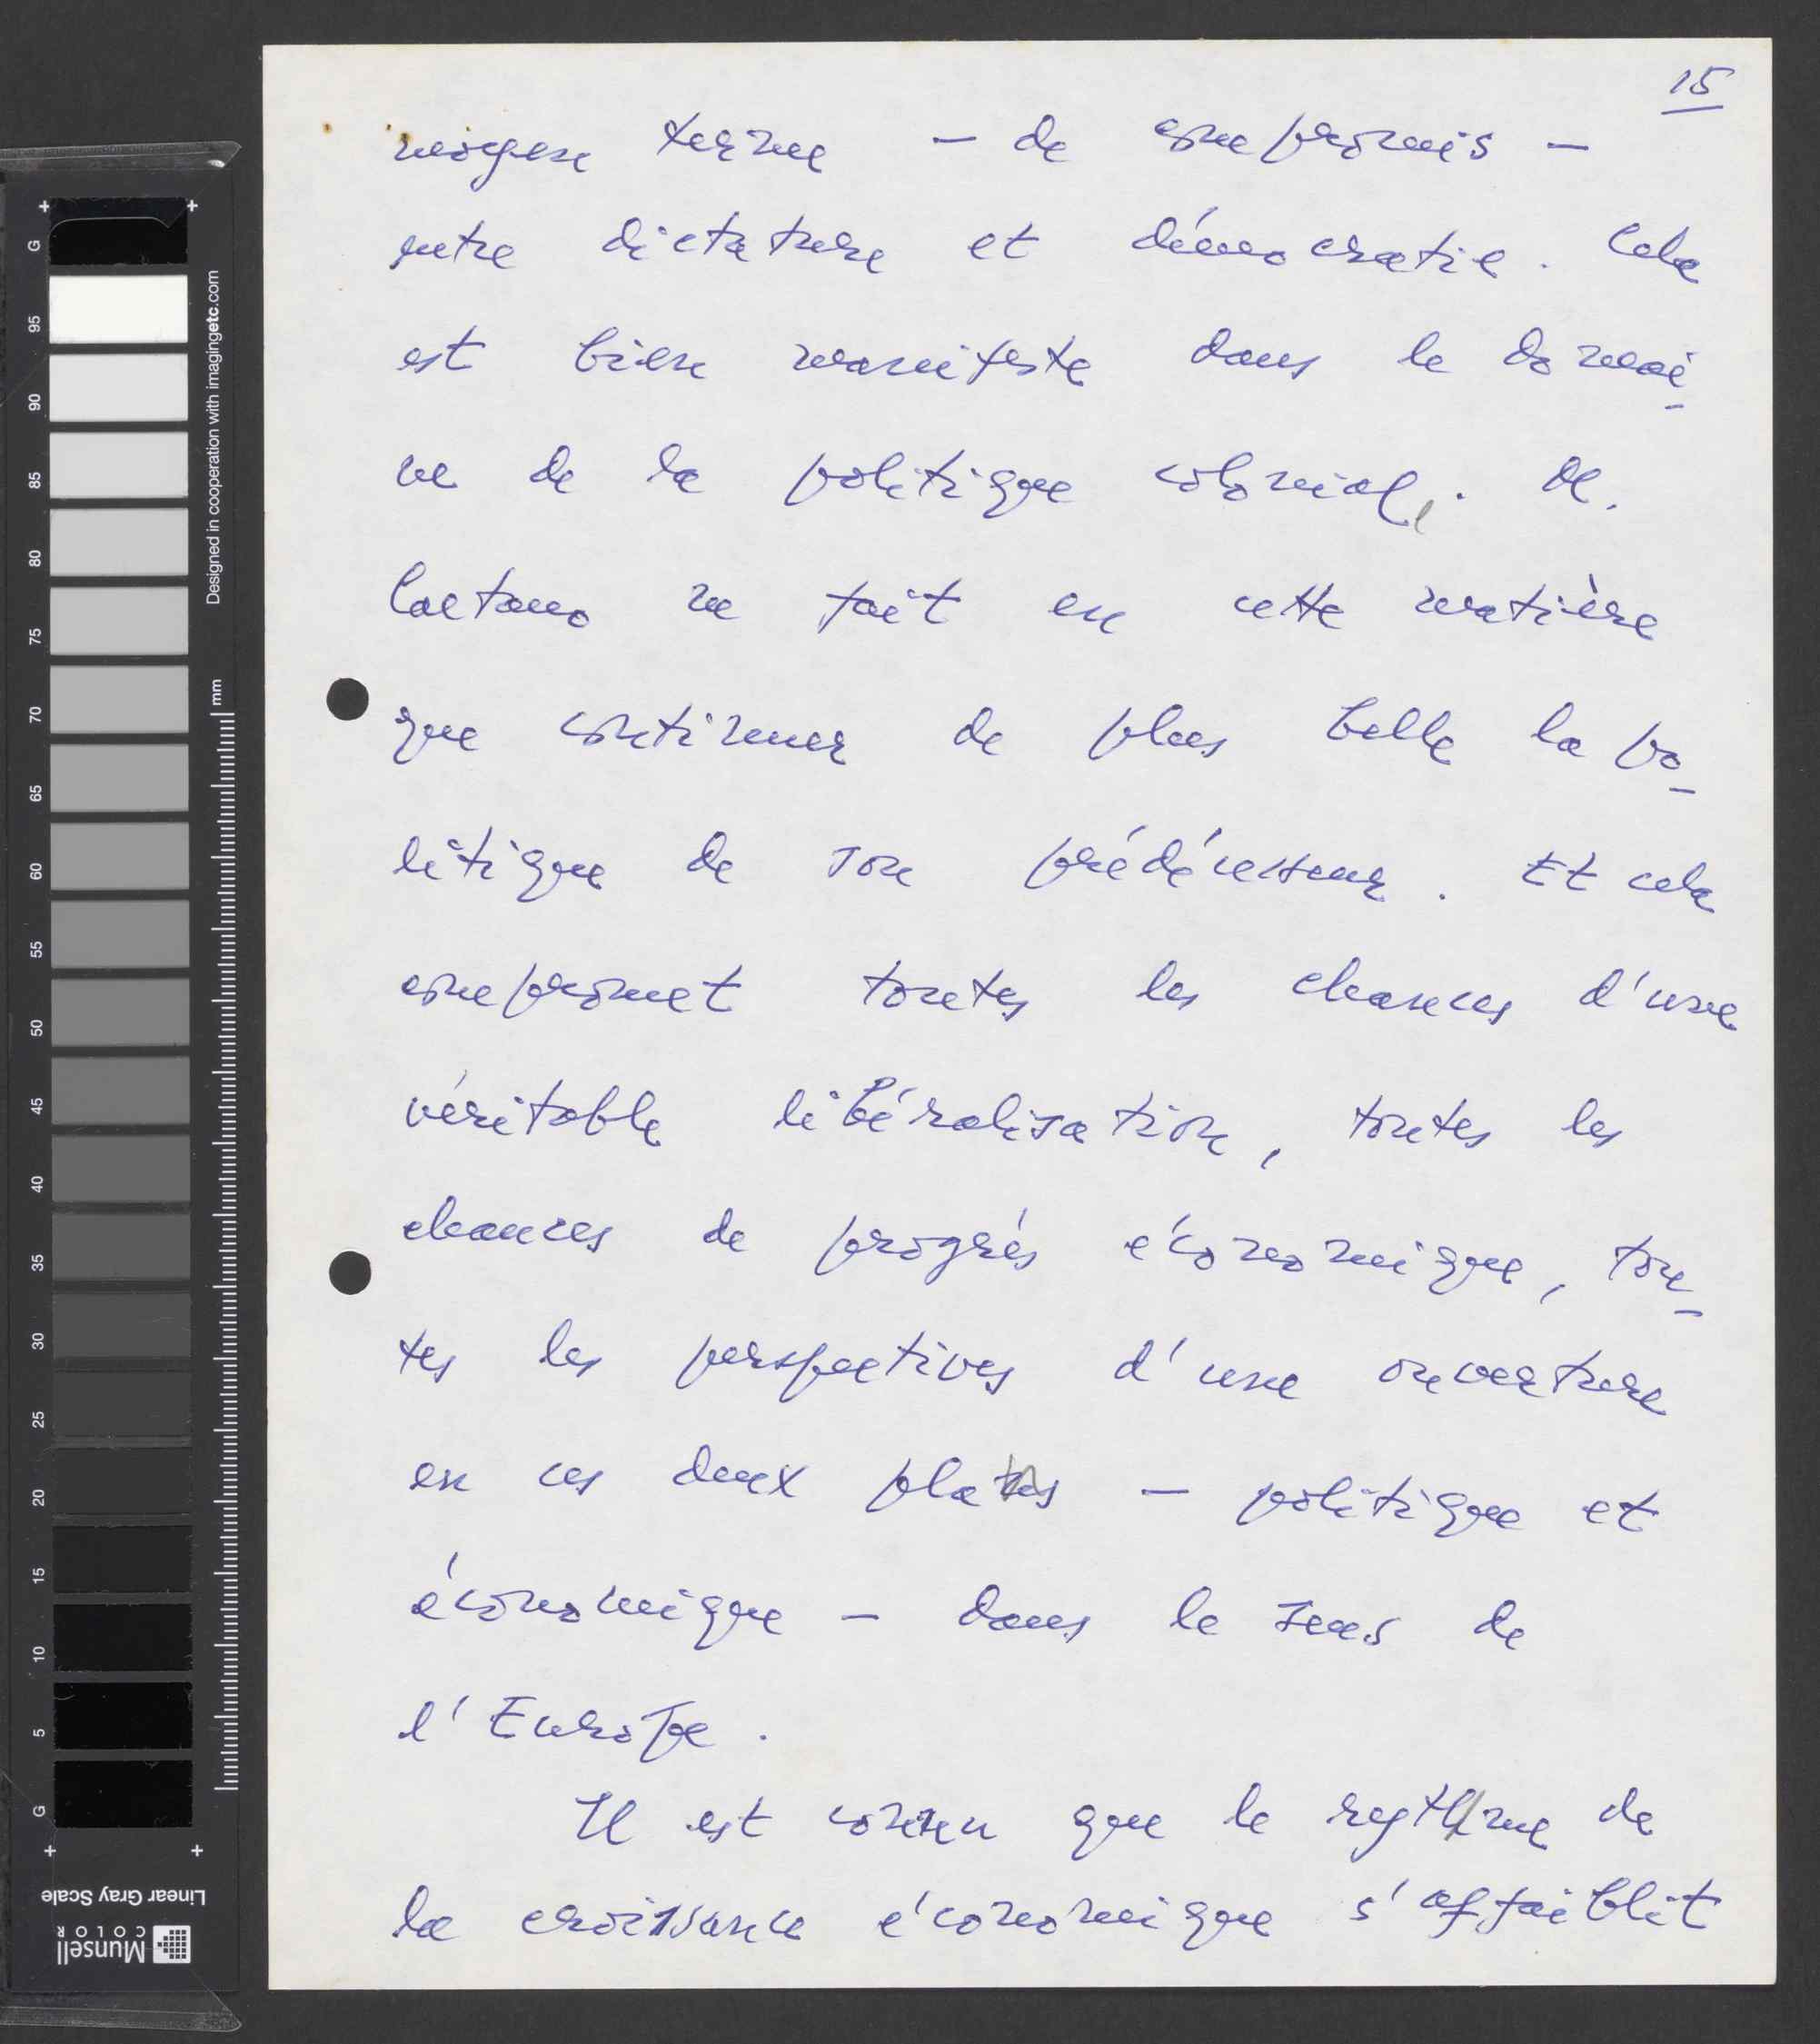 15
moyen terme - de compromis -
entre dictature et démocratie. Cela
est bien manifeste dans le domai-
ne de la politique coloniale. M.
Caetano ne fait en cette matière
que continuer de plus belle la po-
litique de son prédécesseur. Et cela
compromet toutes les chances d'une
véritable libéralisation, toutes les
chances de progrès économique, tou-
tes les perspectives d'une ouverture
en ces deux plans - politique et
économique - dans le sens de
l'Europe.
Il est connu que le rythme de
la croissance économique s'affaiblit
G
95
90
85
80
75
70
65
60
55
50
45
40
35
30
25
20
15
10
5
G
mm
Designed in cooperation with imagingetc.com
Linear Gray Scale
Munsell
COLOR